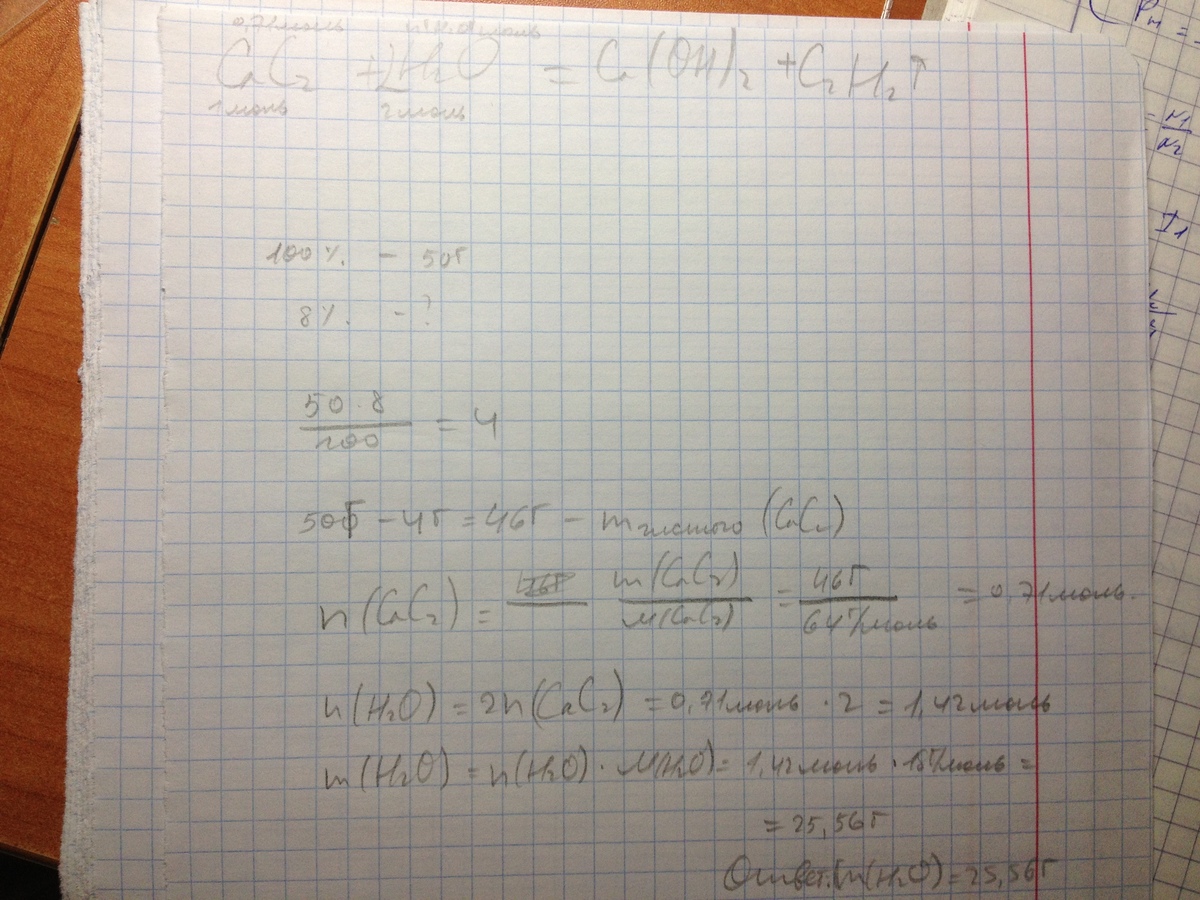 0,71моль моль
CaC₂ + 2H₂O = Ca(OH)₂ + C₂H₂↑
1моль 2моль
100% - 50г
8% - ?
50·8
100
= 4
50г - 4г = 46г - mчистого (CaC₂)
n(CaC₂) = m(CaC₂) / M(CaC₂) = 46г / 64г/моль = 0,71моль.
n(H₂O) = 2n(CaC₂) = 0,71моль · 2 = 1,42моль
m(H₂O) = n(H₂O) · M(H₂O) = 1,42моль · 18г/моль =
= 25,56г
Ответ: m(H₂O) = 25,56г